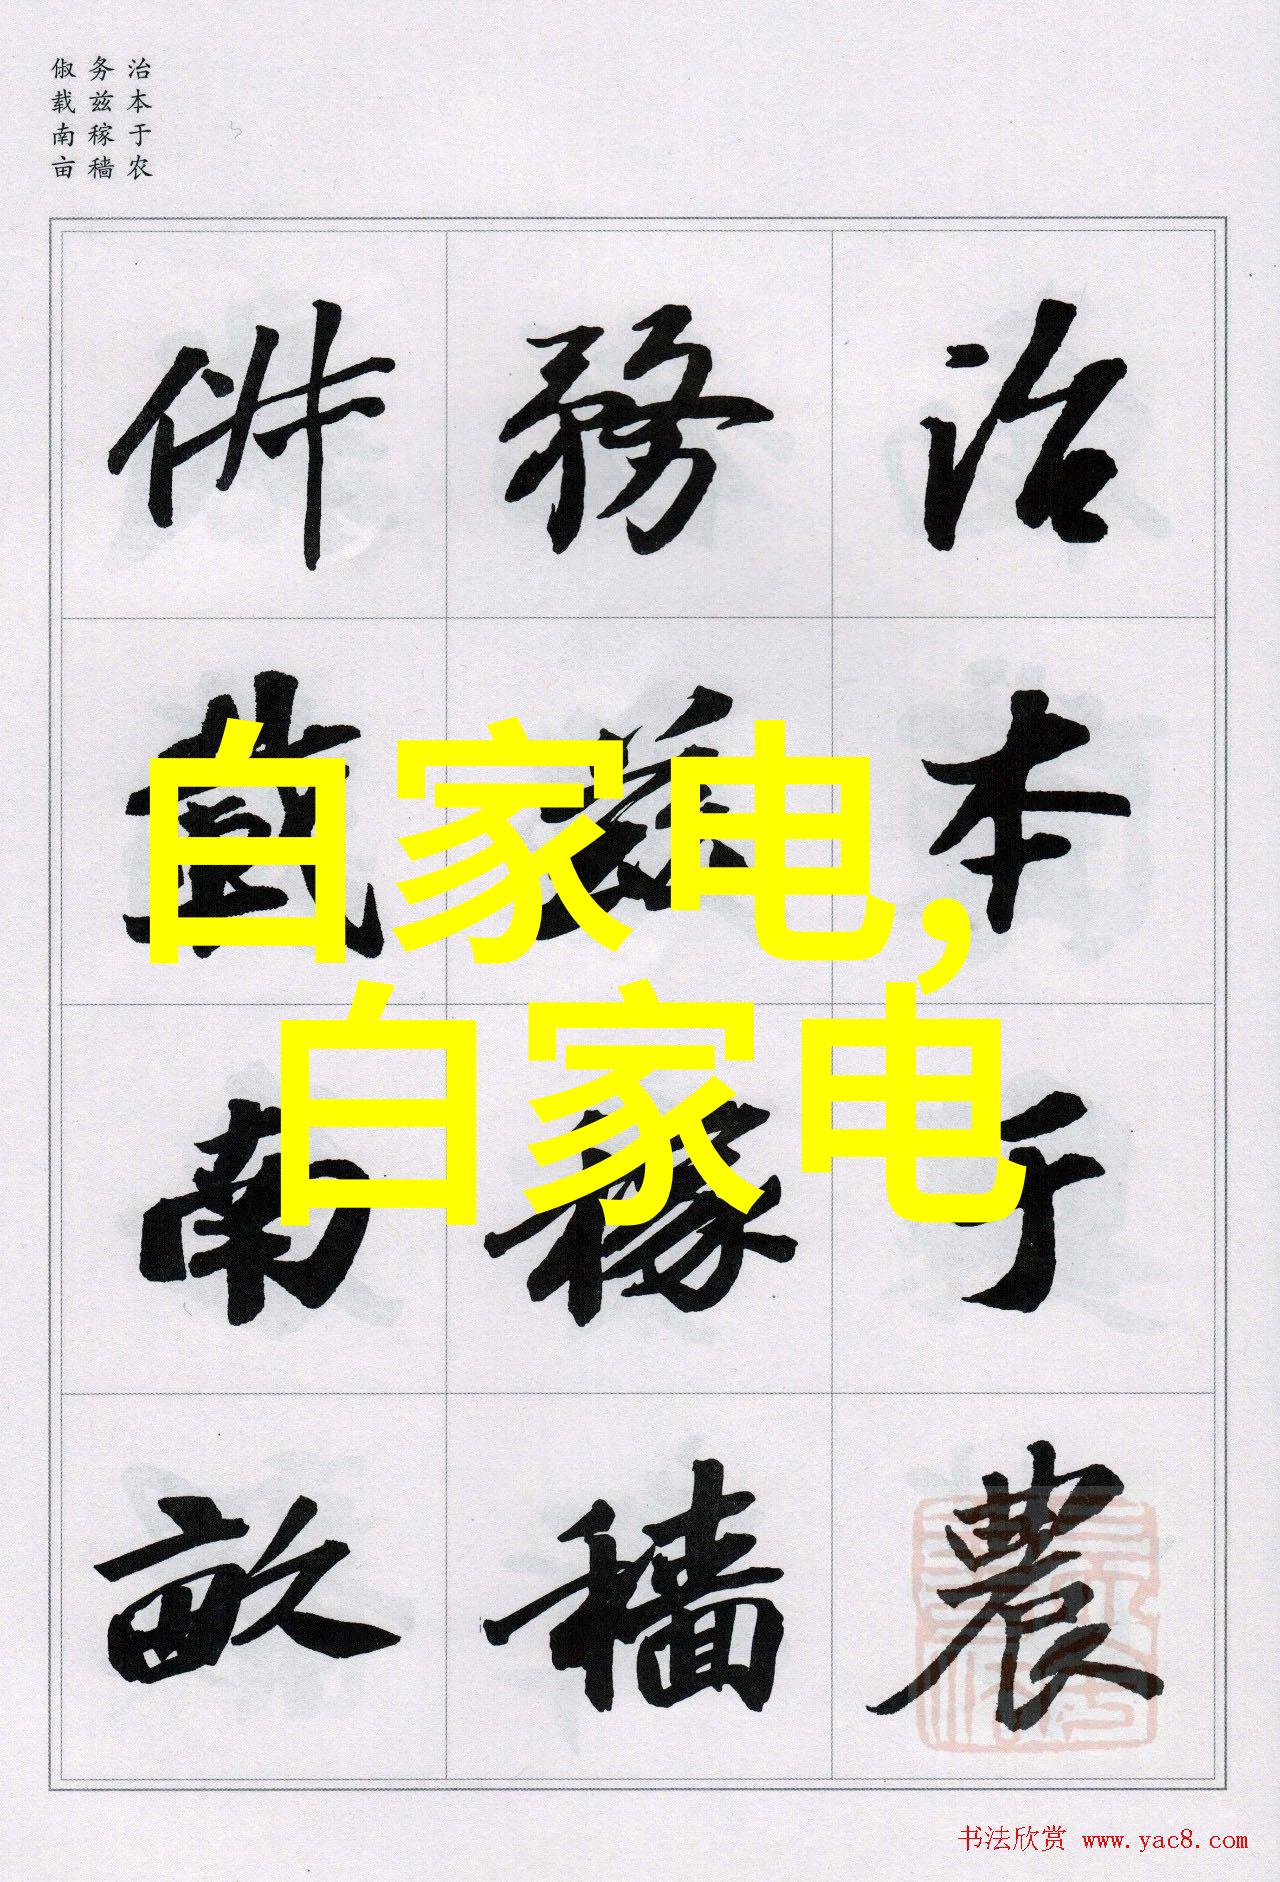 治本于农
务兹稼穑
俶载南亩
治本于農
務茲稼穡
俶載南畝
白家电,
白家电
书法欣赏 www.yac8.com